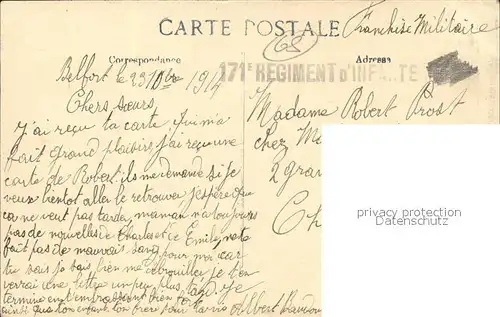 CARTE POSTALE
Franchise Militaire
68
Correspondance
Adresse
171e REGIMENT D'INFANTE
Belfort le 23 1914
Chers sœurs
J'ai reçu ta carte qui m'a
fait grand plaisirs j'ai reçu une
carte de Robert ils me demande si je
veux bientot aller le retrouver j'espère que
ca ne veut pas tarder maman n'a toujours
pas de nouvelles de Charles et de Emile, ne te
fait pas de mauvais sang pour moi car
tu sais je sais bien me débrouiller je t'en
verrai une lettre un peu plus tard. Je
termine en t'embrassant bien fort
ainsi que ton enfant. ton frère pour la vie Albert
Madame Robert Prost
chez
2 gran
Ch
privacy protection
www.oldthing.de